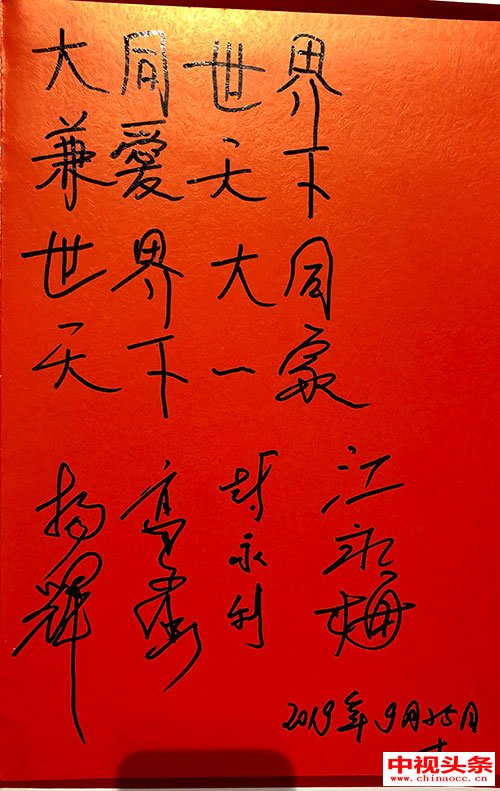 大同世界
兼愛天下
世界大同
天下一家
杨輝
高
封永利
江永梅
2019年9月25日
中视头条
www.chinaocc.cn